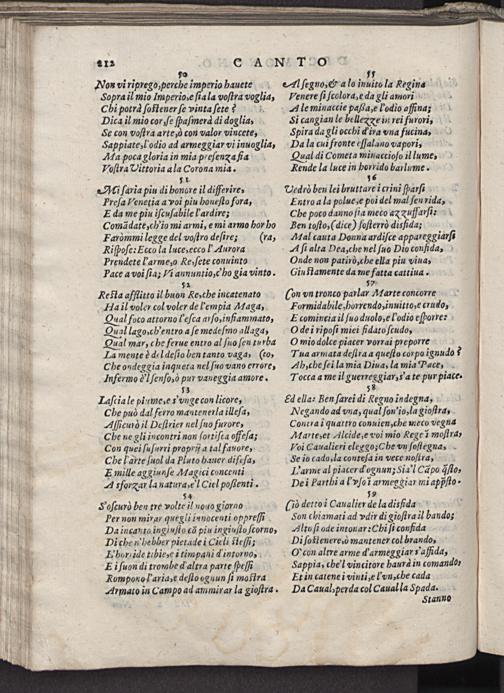 212 CANTO
50
Non vi riprego, perche imperio hauete
Sopra il mio Imperio, e sia la vostra voglia,
Chi potrà sostener se vinta sete?
Dica il mio cor, se spasmerà di doglia,
Se con vostra arte, ò con valor vincete,
Sappiate, l'odio ad armeggiar vi inuoglia,
Ma poca gloria in mia presenza fia
Vostra Vittoria a la Corona mia.
51
Mi saria piu di honore il differire,
Presa Venetia a voi piu honesto fora,
E da me piu iscusabile l'ardire;
Comādate, ch'io mi armi, e mi armo hor ho
Faròmmi legge del vostro desire; (ra,
Rispose: Ecco la luce, ecco l'Aurora
Prendete l'arme, o Re, sete conuinto
Pace a voi sia; Vi annuntio, c'ho gia vinto.
52
Resta afflitto il buon Re, che incatenato
Ha il voler col voler de l'empia Maga,
Qual foco attorno l'esca arso, infiammato,
Qual lago, ch'entro a se medesmo allaga,
Qual mar, che ferue entro al suo sen turba
La mente è del desio ben tanto vaga, (to,
Che ondeggia inqueta nel suo vano errore,
Infermo è'l senso, ò pur vaneggia amore.
53
Lascia le piume, e s'vnge con licore,
Che può dal ferro mantenerla illesa,
Assicurò il Destrier nel suo furore,
Che ne gli incontri non sortisca offesa;
Con quei susurri proprij a tal fauore,
Che l'arte suol da Pluto hauer discesa,
E mille aggiunse Magici concenti
A sforzar la natura, e'l Ciel possenti.
54
S'oscurò ben tre volte il nouo giorno
Per non mirar quegli innocenti oppressi
Da incanto ingiusto cō piu ingiusto scorno,
Di che n'hebber pietade i Cieli stessi;
E'horride tibie, e i timpani d'intorno,
E i suon di trombe d'altra parte spessi
Rompono l'aria, e desto ognun si mostra
Armato in Campo ad ammirar la giostra.
55
Al segno, & a lo inuito la Regina
Venere si scolora, e da gli amori
A le minaccie passa, e l'odio affina;
Si cangian le bellezze in rei furori,
Spira da gli occhi d'ira vna fucina,
Da la cui fronte essalano vapori,
Qual di Cometa minaccioso il lume,
Rende la luce in horrido barlume.
56
Vedrò ben lei bruttare i crini sparsi
Entro a la polue, e poi del mal sen rida,
Che poco danno sia meco azzuffarsi:
Ben tosto, (dice) sosterrò disfida;
Mal cauta Donna ardisce appareggiarsi
A sì alta Dea, che nel suo Dio confida,
Onde non patirò, che ella piu viua,
Giustamente da me fatta cattiua.
57
Con vn tronco parlar Marte concorre
Formidabile, horrendo, inuitto, e crudo,
E comincia il suo duolo, e l'odio esporre:
O de i riposi miei fidato scudo,
O mio dolce piacer vorrai preporre
Tua armata destra a questo corpo ignudo?
Ah, che sei la mia Diua, la mia Pace,
Tocca a me il guerreggiar, s'a te pur piace.
58
Ed ella: Ben sarei di Regno indegna,
Negando ad vna, qual son'io, la giostra,
Contra i quattro conuien, che meco vegna
Marte, et Alcide, e voi mio Rege i mostra,
Voi Caualieri eleggo; Che vn sostegna,
Se io cado, la contesa in vece nostra,
L'arme al piacer d'ognun; Sia'l Cāpo q̄sto,
De i Parthi a l'vso i armeggiar mi app̄sto.
59
Ciò detto i Caualier de la disfida
Son chiamati ad vdir di giostra il bando;
Alto si ode intonar: Chi si confida
Di sostenere, ò mantener col brando,
O' con altre arme d'armeggiar s'affida,
Sappia, che'l vincitore haurà in comando;
Et in catene i vinti, e l'vn, che cada
Da Caual, perda col Caual la Spada.
Stanno